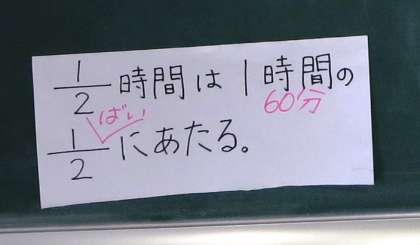 1/2時間は1時間の
60分
ばい
1/2にあたる。